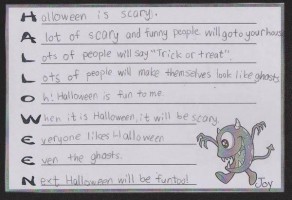 Halloween is scary.
A lot of scary and funny people will go to your house
Lots of people will say "Trick or treat".
Lots of people will make themselves look like ghosts
Oh! Halloween is fun to me.
When it is Halloween, it will be scary.
Everyone likes Halloween
Even the ghosts.
Next Halloween will be fun too!
Joy